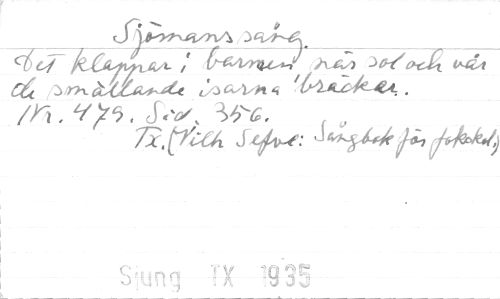 Sjömanssång.
Det klappar i barmen, när sol och vår
de smällande isarna bräckar.
Nr. 479. Sid. 356.
Tx. (Vilh Sefve: Sångbok för folkskol.)
Sjung TX 1935